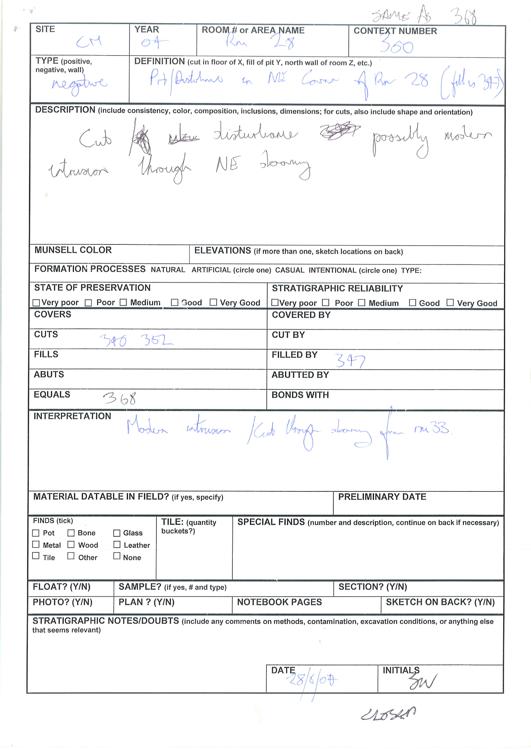 SAME AS 368
SITE YEAR ROOM # or AREA NAME CONTEXT NUMBER
CM 04 Rm 28 350
TYPE (positive, negative, wall) DEFINITION (cut in floor of X, fill of pit Y, north wall of room Z, etc.)
negative Pit/Disturbance in NE Corner of Rm 28 (fill is 347)
DESCRIPTION (include consistency, color, composition, inclusions, dimensions; for cuts, also include shape and orientation)
Cut / disturbance possibly modern
intrusion through NE doorway
MUNSELL COLOR ELEVATIONS (if more than one, sketch locations on back)
FORMATION PROCESSES NATURAL ARTIFICIAL (circle one) CASUAL INTENTIONAL (circle one) TYPE:
STATE OF PRESERVATION STRATIGRAPHIC RELIABILITY
☐Very poor ☐ Poor ☐ Medium ☐ Good ☐ Very Good ☐Very poor ☐ Poor ☐ Medium ☐ Good ☐ Very Good
COVERS COVERED BY
CUTS 340 352 CUT BY
FILLS FILLED BY 347
ABUTS ABUTTED BY
EQUALS 368 BONDS WITH
INTERPRETATION Modern intrusion / Cut through doorway from rm 33
MATERIAL DATABLE IN FIELD? (if yes, specify) PRELIMINARY DATE
FINDS (tick) TILE: (quantity buckets?) SPECIAL FINDS (number and description, continue on back if necessary)
☐ Pot ☐ Bone ☐ Glass
☐ Metal ☐ Wood ☐ Leather
☐ Tile ☐ Other ☐ None
FLOAT? (Y/N) SAMPLE? (if yes, # and type) SECTION? (Y/N)
PHOTO? (Y/N) PLAN ? (Y/N) NOTEBOOK PAGES SKETCH ON BACK? (Y/N)
STRATIGRAPHIC NOTES/DOUBTS (include any comments on methods, contamination, excavation conditions, or anything else
that seems relevant)
DATE INITIALS
28/6/04
CLOSED